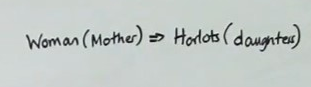 Woman (Mother) ⇒ Harlots (daughters)